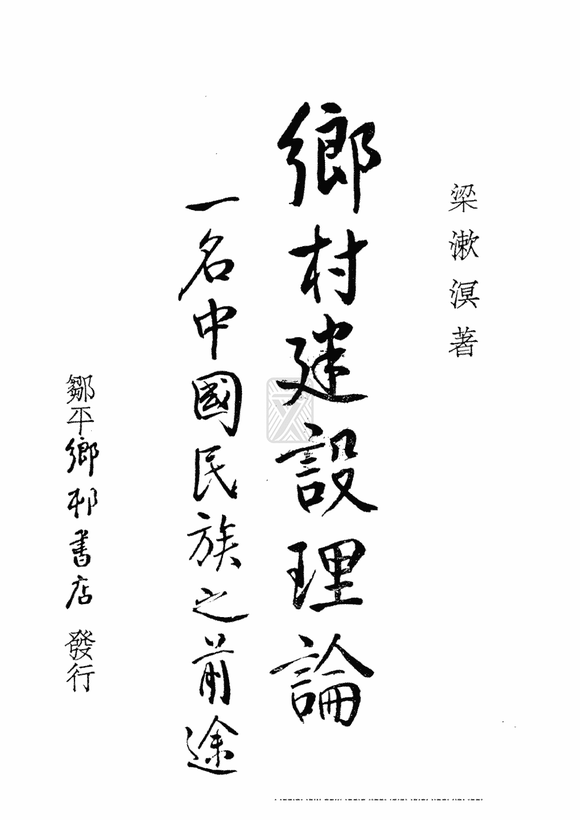 梁漱溟著
鄉村建設理論
一名中國民族之前途
鄒平鄉邨書店 發行